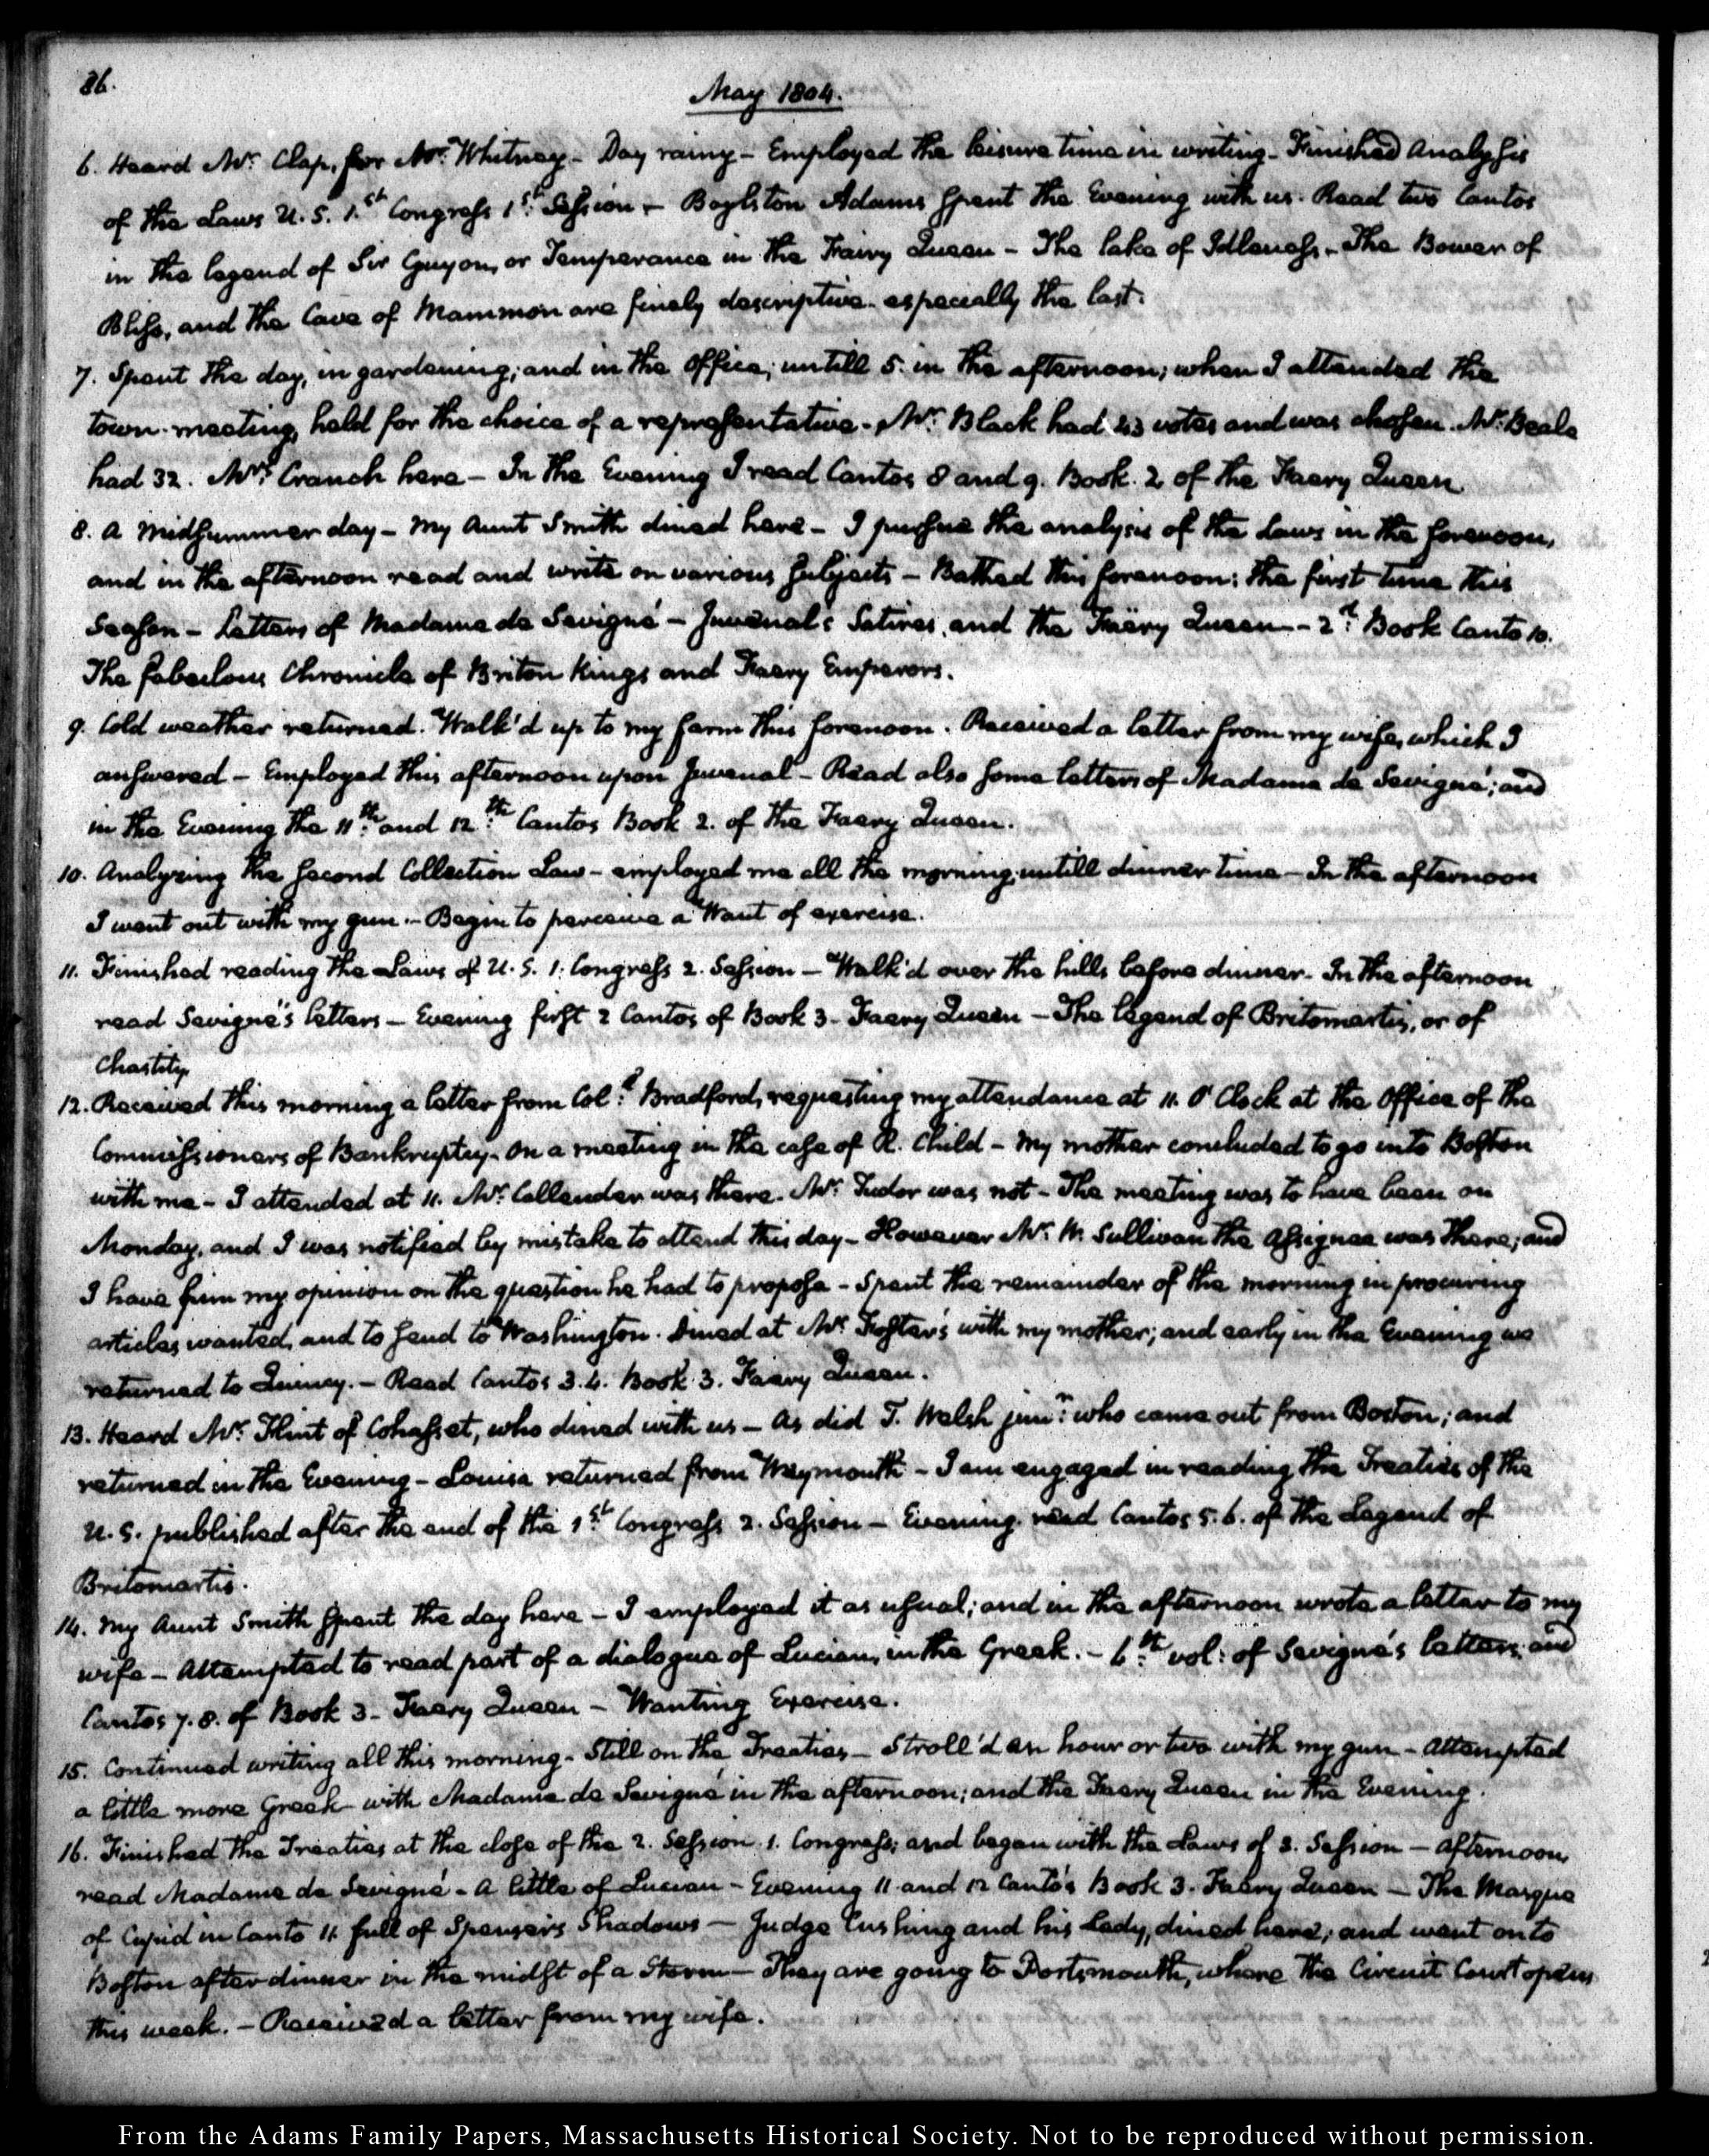 86.
May 1804.
6. Heard Mr: Clap, for Mr: Whitney - Day rainy - Employed the leisure time in writing - Finished Analysis
of the Laws U.S. 1.st Congress 1st: Session - Boylston Adams spent the Evening with us. Read two Cantos
in the legend of Sir Guyon, or Temperance in the Fairy Queen - The lake of Idleness - The Bower of
Bliss, and the Cave of Mammon are finely descriptive - especially the last.
7. Spent the day, in gardening, and in the office, untill 5. in the afternoon; when I attended the
town-meeting, held for the choice of a representative - Mr: Black had 43 votes and was chosen. Mr: Beale
had 32. Mrs: Cranch here - In the Evening I read Cantos 8 and 9. Book. 2 of the Faery Queen
8. A midsummer day - My Aunt Smith dined here - I pursue the analysis of the Laws in the forenoon,
and in the afternoon read and write on various subjects - Bathed this forenoon: the first time this
Season - Letters of Madame de Sevigné - Juvenal's Satires, and the Faëry Queen - 2d: Book Canto 10.
The fabulous Chronicle of Briton Kings and Faery Emperors.
9. Cold weather returned. Walk'd up to my farm this forenoon. Received a letter from my wife, which I
answered - Employed this afternoon upon Juvenal - Read also some letters of Madame de Sevigné; and
in the Evening the 11th: and 12th: Cantos Book 2. of the Faery Queen.
10. Analyzing the second Collection Law - employed me all the morning, untill dinner time - In the afternoon
I went out with my gun. - Begin to perceive a Want of exercise.
11. Finished reading the Laws of U.S. 1: Congress 2. Session - Walk'd over the hills before dinner - In the afternoon
read Sevigné's letters - Evening first 2 Cantos of Book 3 - Faery Queen - The legend of Britomartis, or of
Chastity.
12. Received this morning a letter from Coll: Bradford, requesting my attendance at 11. O'Clock at the Office of the
Commissioners of Bankruptcy - On a meeting in the case of R. Child - My mother concluded to go into Boston
with me - I attended at 11. Mr: Callender was there. Mr: Tudor was not - The meeting was to have been on
Monday, and I was notified by mistake to attend this day - However Mr: W. Sullivan the Assignee was there; and
I have him my opinion on the question he had to propose - Spent the remainder of the morning in procuring
articles wanted, and to send to Washington. Dined at Mr: Foster's with my mother; and early in the Evening we
returned to Quincy. - Read Cantos 3. 4. Book 3. Faery Queen.
13. Heard Mr: Flint of Cohasset, who dined with us - As did T. Welsh junr: who came out from Boston; and
returned in the Evening - Louisa returned from Weymouth - I am engaged in reading the Treaties of the
U.S. published after the end of the 1st: Congress 2. Session - Evening read Cantos 5. 6. of the Legend of
Britomartis.
14. My Aunt Smith spent the day here - I employed it as usual; and in the afternoon wrote a letter to my
wife - Attempted to read part of a dialogue of Lucian, in the Greek. - 6th: vol: of Sevigné's letters, and
Cantos 7. 8. of Book 3 - Faery Queen - Wanting Exercise.
15. Continued writing all this morning - Still on the Treaties - Stroll'd an hour or two with my gun - Attempted
a little more Greek - with Madame de Sevigné in the afternoon; and the Faery Queen in the Evening.
16. Finished the Treaties at the close of the 2. Session 1. Congress; and began with the Laws of 3. Session - Afternoon,
read Madame de Sevigné - A little of Lucian - Evening 11 and 12 Canto's Book 3. Faery Queen - The Masque
of Cupid in Canto 11. full of Spenser's Shadows - Judge Cushing and his Lady, dined here; and went on to
Boston after dinner in the midst of a Storm - They are going to Portsmouth, where the Circuit Court opens
this week. - Received a letter from my wife.
From the Adams Family Papers, Massachusetts Historical Society. Not to be reproduced without permission.